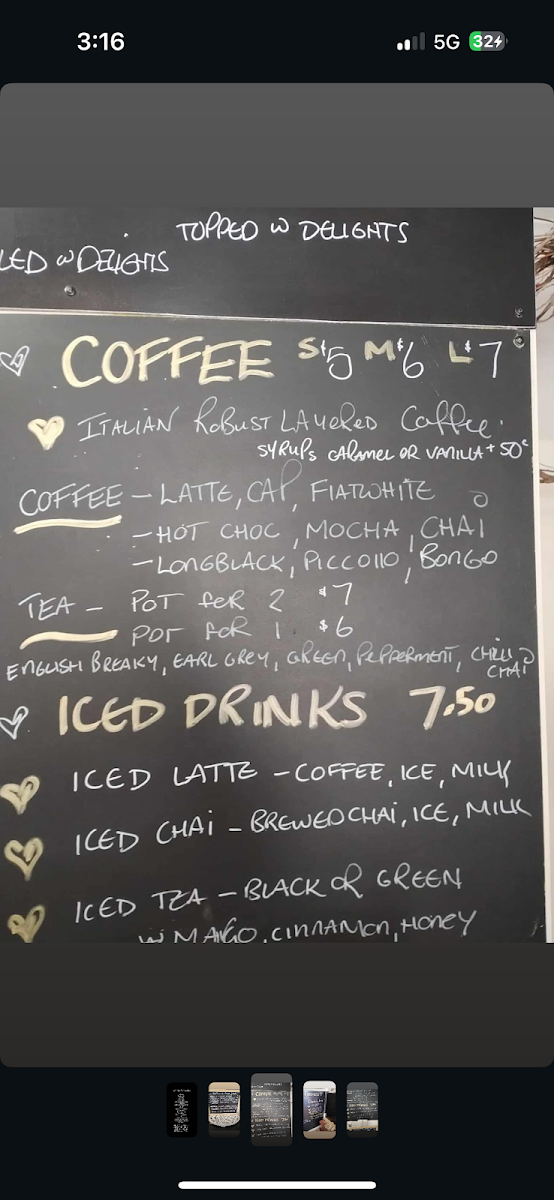 3:16 5G 32
TOPPED W DELIGHTS
LED W DELIGHTS
COFFEE S $5 M $6 L $7
ITALIAN ROBUST LAYERED COFFEE.
SYRUPS CARAMEL OR VANILLA + 50c
COFFEE - LATTE, CAP, FLATWHITE
- HOT CHOC, MOCHA, CHAI
- LONGBLACK, PICCOLLO, BONGO
TEA - POT FOR 2 $7
POT FOR 1 $6
ENGLISH BREAKY, EARL GREY, GREEN, PEPPERMENT, CHILLI
CHAI
ICED DRINKS 7.50
ICED LATTE - COFFEE, ICE, MILK
ICED CHAI - BREWED CHAI, ICE, MILK
ICED TEA - BLACK OR GREEN
W MANGO, CINNAMON, HONEY